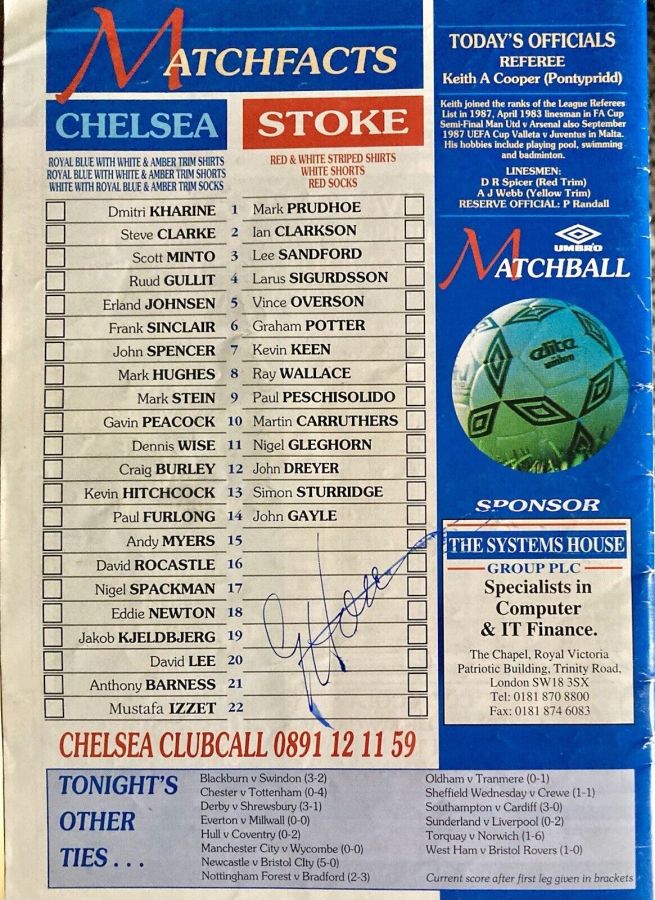 MATCHFACTS
CHELSEA
ROYAL BLUE WITH WHITE & AMBER TRIM SHIRTS
ROYAL BLUE WITH WHITE & AMBER TRIM SHORTS
WHITE WITH ROYAL BLUE & AMBER TRIM SOCKS
STOKE
RED & WHITE STRIPED SHIRTS
WHITE SHORTS
RED SOCKS
Dmitri KHARINE 1 Mark PRUDHOE
Steve CLARKE 2 Ian CLARKSON
Scott MINTO 3 Lee SANDFORD
Ruud GULLIT 4 Larus SIGURDSSON
Erland JOHNSEN 5 Vince OVERSON
Frank SINCLAIR 6 Graham POTTER
John SPENCER 7 Kevin KEEN
Mark HUGHES 8 Ray WALLACE
Mark STEIN 9 Paul PESCHISOLIDO
Gavin PEACOCK 10 Martin CARRUTHERS
Dennis WISE 11 Nigel GLEGHORN
Craig BURLEY 12 John DREYER
Kevin HITCHCOCK 13 Simon STURRIDGE
Paul FURLONG 14 John GAYLE
Andy MYERS 15
David ROCASTLE 16
Nigel SPACKMAN 17
Eddie NEWTON 18
Jakob KJELDBJERG 19
David LEE 20
Anthony BARNESS 21
Mustafa IZZET 22
CHELSEA CLUBCALL 0891 12 11 59
TODAY'S OFFICIALS
REFEREE
Keith A Cooper (Pontypridd)
Keith joined the ranks of the League Referees
List in 1987, April 1983 linesman in FA Cup
Semi-Final Man Utd v Arsenal also September
1987 UEFA Cup Valleta v Juventus in Malta.
His hobbies include playing pool, swimming
and badminton.
LINESMEN:
D R Spicer (Red Trim)
A J Webb (Yellow Trim)
RESERVE OFFICIAL: P Randall
UMBRO
MATCHBALL
elite
umbro
SPONSOR
THE SYSTEMS HOUSE
GROUP PLC
Specialists in
Computer
& IT Finance.
The Chapel, Royal Victoria
Patriotic Building, Trinity Road,
London SW18 3SX
Tel: 0181 870 8800
Fax: 0181 874 6083
TONIGHT'S
OTHER
TIES . . .
Blackburn v Swindon (3-2)
Chester v Tottenham (0-4)
Derby v Shrewsbury (3-1)
Everton v Millwall (0-0)
Hull v Coventry (0-2)
Manchester City v Wycombe (0-0)
Newcastle v Bristol CIty (5-0)
Nottingham Forest v Bradford (2-3)
Oldham v Tranmere (0-1)
Sheffield Wednesday v Crewe (1-1)
Southampton v Cardiff (3-0)
Sunderland v Liverpool (0-2)
Torquay v Norwich (1-6)
West Ham v Bristol Rovers (1-0)
Current score after first leg given in brackets